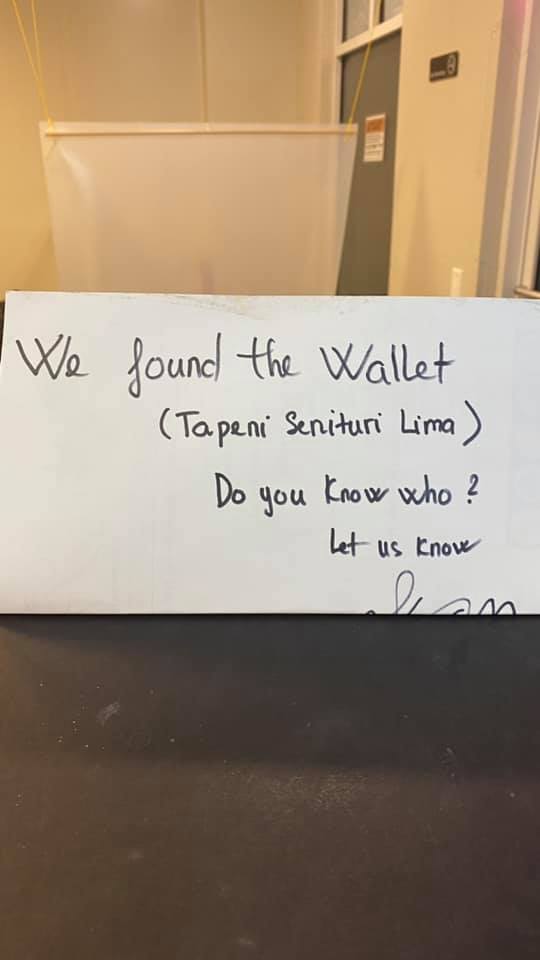 We found the Wallet
(Tapeni Senituri Lima)
Do you know who?
Let us know